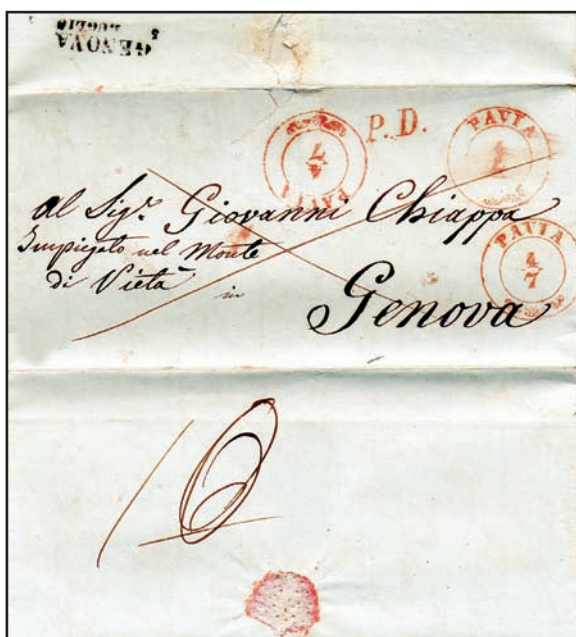 GENOVA
5 LUGLIO
P.D.
PAVIA
4
7
PAVIA
4
7
PAVIA
4
7
al Sigr. Giovanni Chiappa
Impiegato nel Monte
di Pietà
in
Genova